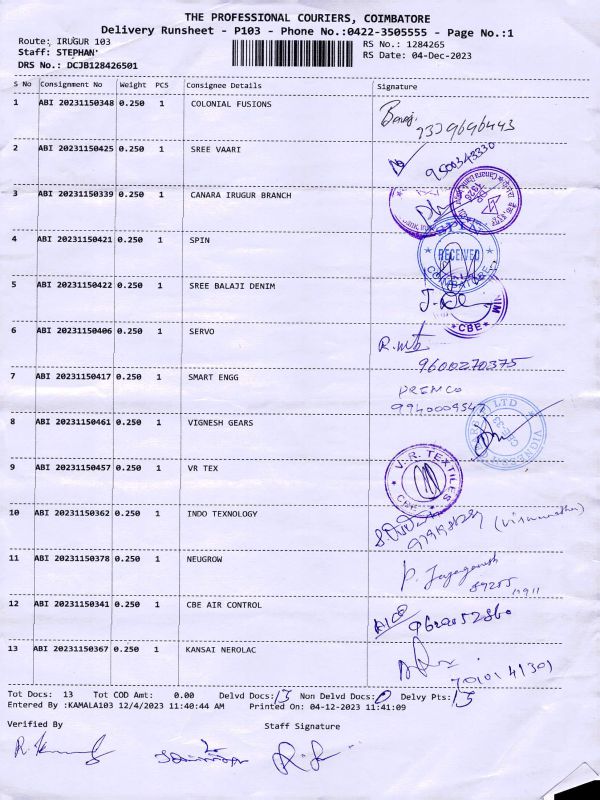 THE PROFESSIONAL COURIERS, COIMBATORE
Delivery Runsheet - P103 - Phone No.:0422-3505555 - Page No.:1
Route: IRUGUR 103
RS No.: 1284265
Staff: STEPHAN
RS Date: 04-Dec-2023
DRS No.: DCJB128426501
S No Consignment No Weight PCS Consignee Details Signature
1 ABI 20231150348 0.250 1 COLONIAL FUSIONS
9339696443
2 ABI 20231150425 0.250 1 SREE VAARI
9500343330
3 ABI 20231150339 0.250 1 CANARA IRUGUR BRANCH
4 ABI 20231150421 0.250 1 SPIN
SPIN RECEIVED COIMBATORE
5 ABI 20231150422 0.250 1 SREE BALAJI DENIM
CBE
6 ABI 20231150406 0.250 1 SERVO
9600270375
7 ABI 20231150417 0.250 1 SMART ENGG
PREMCO
9940009547
8 ABI 20231150461 0.250 1 VIGNESH GEARS
9 ABI 20231150457 0.250 1 VR TEX
V.R. TEXTILES CBE
10 ABI 20231150362 0.250 1 INDO TEXNOLOGY
11 ABI 20231150378 0.250 1 NEUGROW
P. Jayaganesh
12 ABI 20231150341 0.250 1 CBE AIR CONTROL
13 ABI 20231150367 0.250 1 KANSAI NEROLAC
Tot Docs: 13 Tot COD Amt: 0.00 Delvd Docs: 13 Non Delvd Docs: 0 Delvy Pts: 13
Entered By :KAMALA103 12/4/2023 11:40:44 AM Printed On: 04-12-2023 11:41:09
Verified By Staff Signature